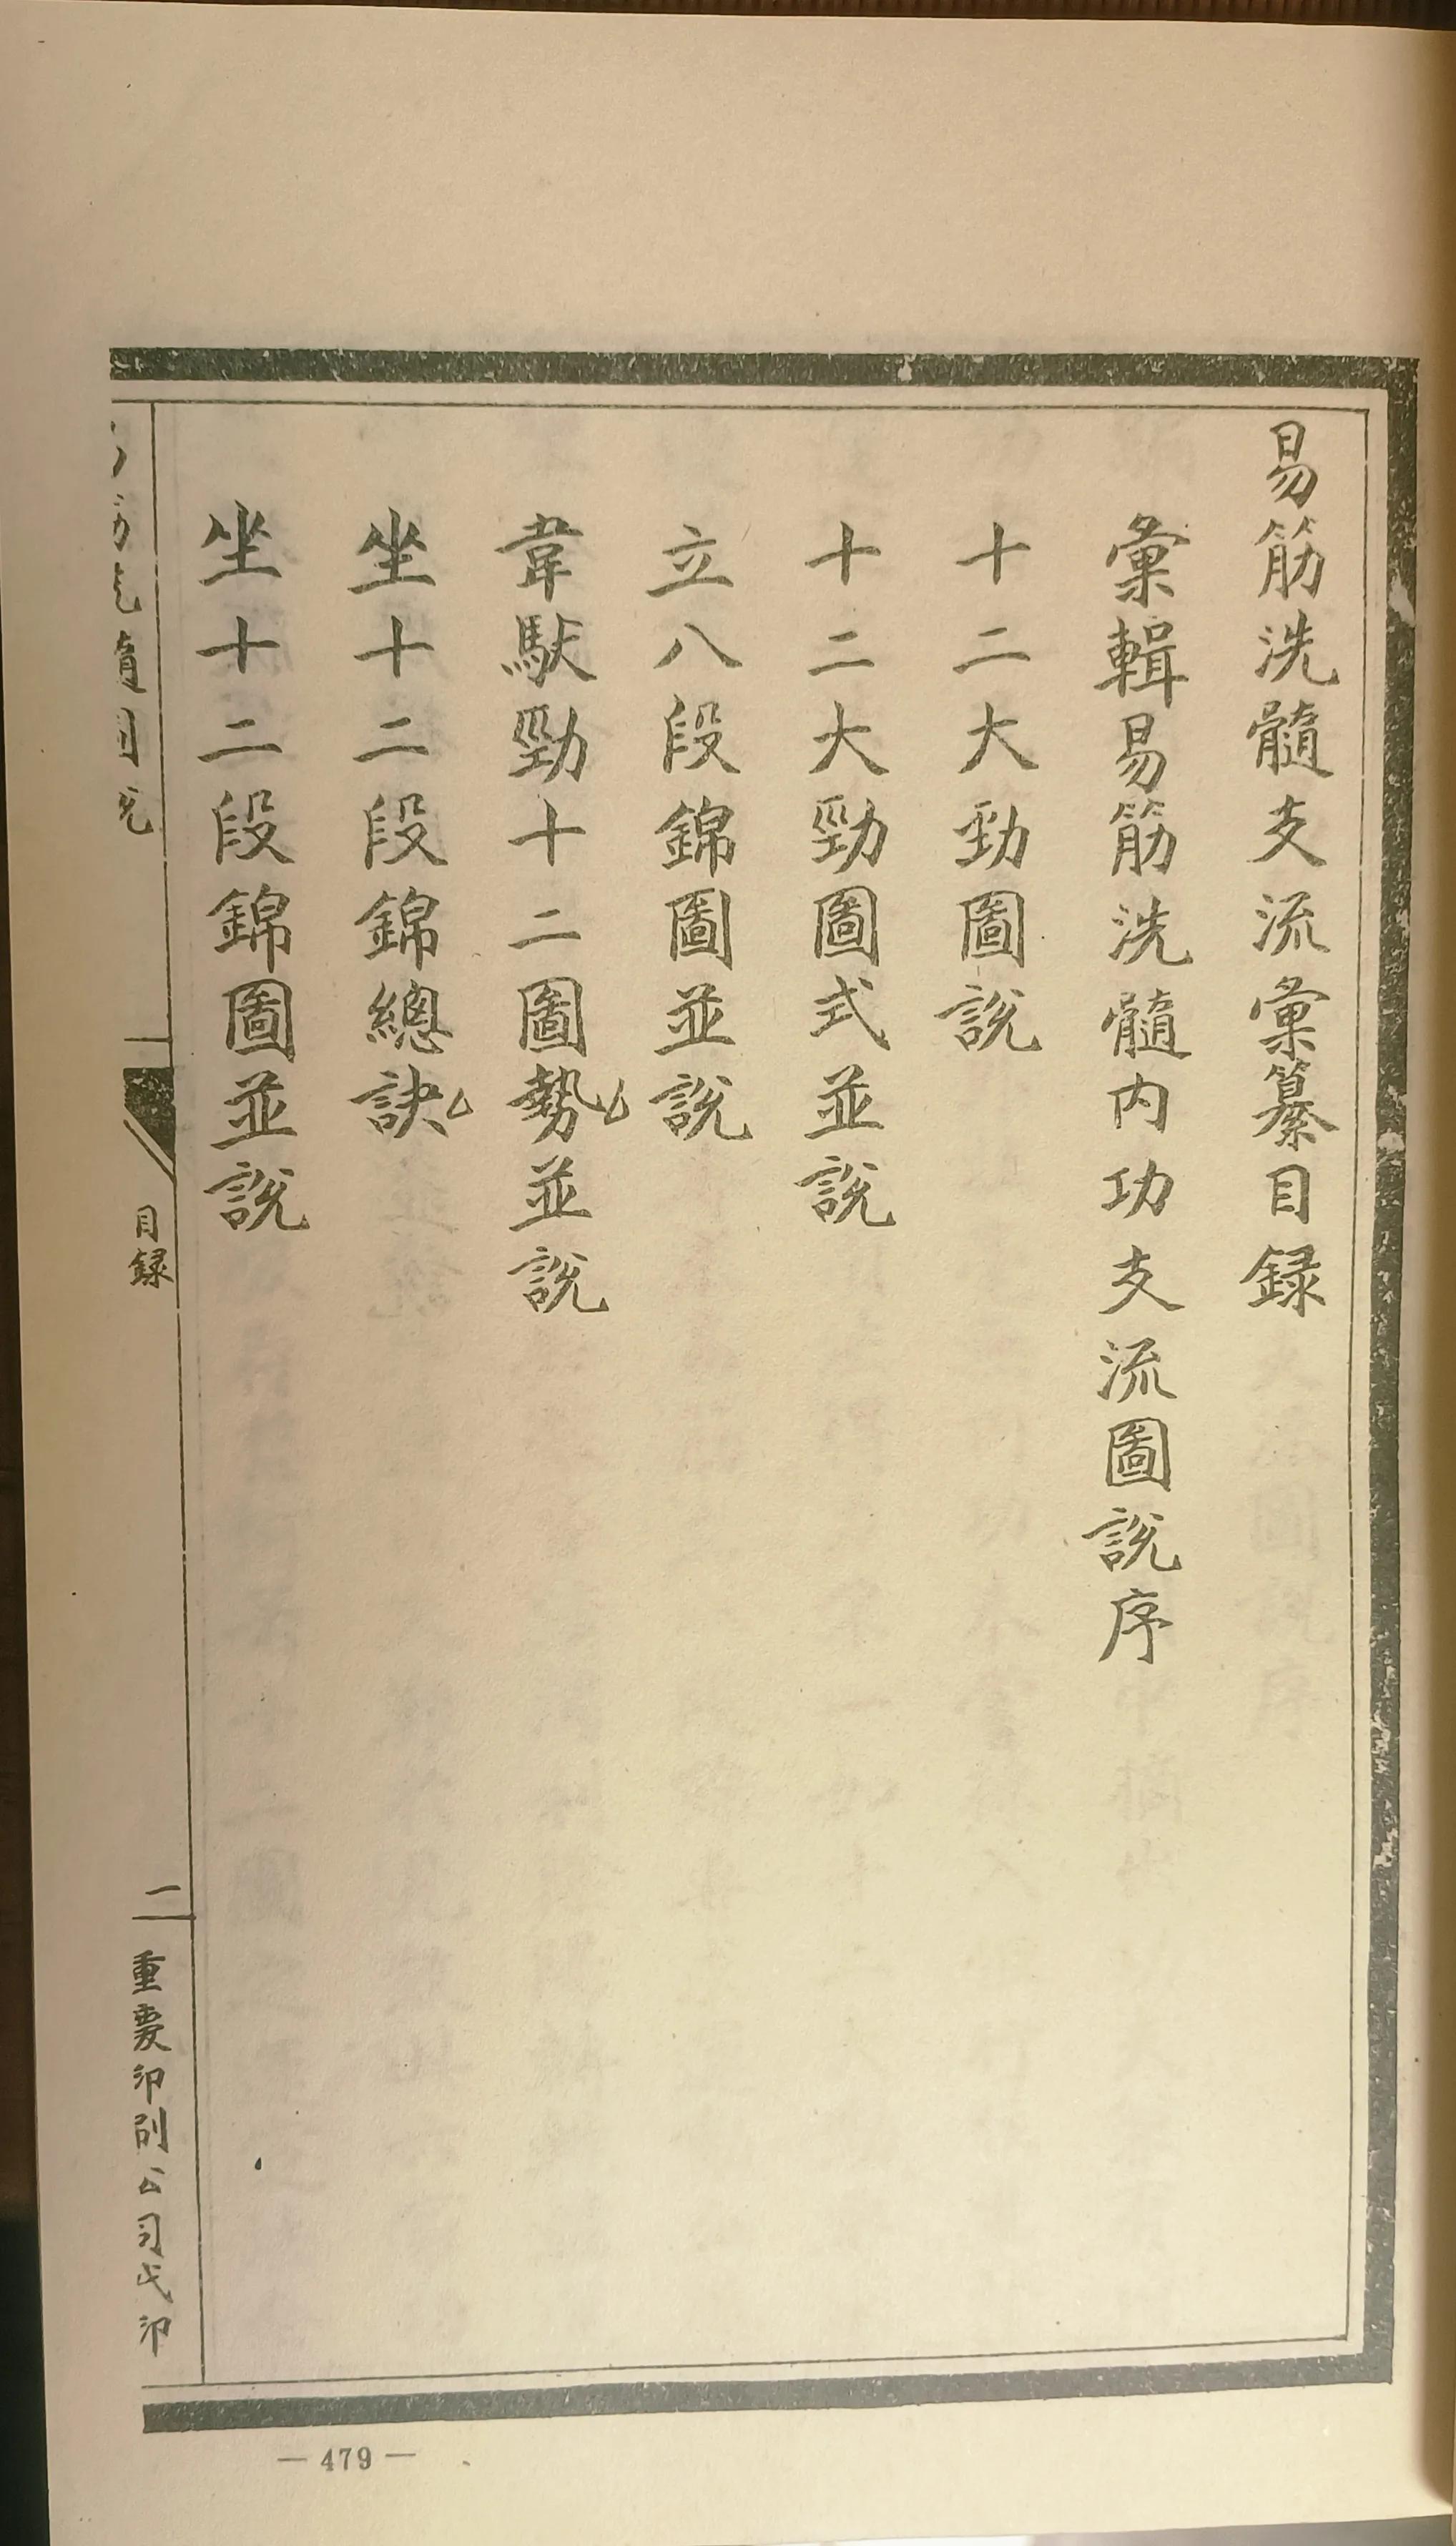 易筋洗髓支流彙纂目録
彙輯易筋洗髓内功支流圖說序
十二大勁圖說
十二大勁圖式並說
立八段錦圖並說
韋馱勁十二圖勢並說
坐十二段錦總訣
坐十二段錦圖並說
目録
二
重慶印刷公司代印
— 479 —